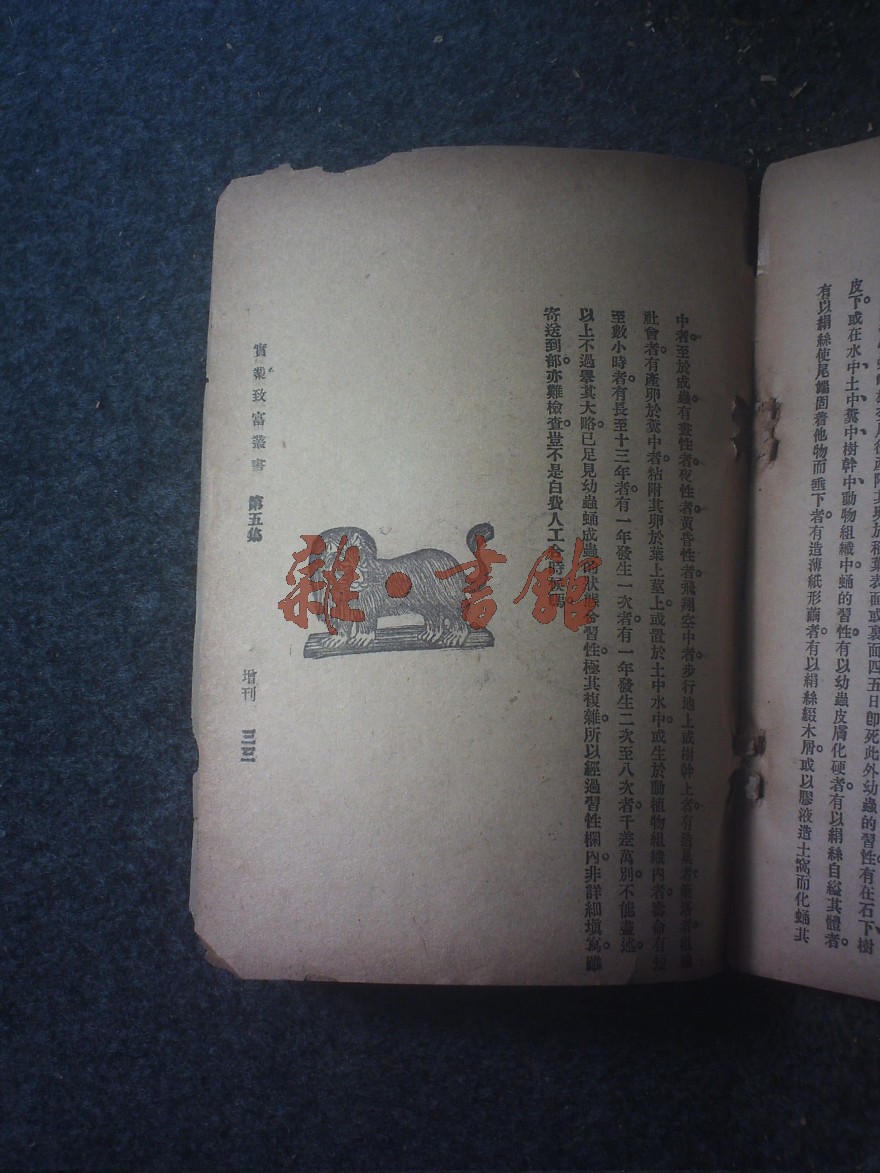 皮下。或在水中、土中、糞中、樹幹中、動物組織中。蛹的習性。有以幼蟲皮膚化硬者。有以絹絲自縊其體者。
有以絹絲使尾端固着他物而垂下者。有造薄紙形繭者。有以絹絲綴木屑。或以膠液造土窩而化蛹其
中者。至於成蟲有晝性者。夜性者。黃昏性者。飛翔空中者。步行地上或樹幹上者。有造巢者。
社會者。有產卵於糞中者。粘附其卵於葉上莖上。或置於土中水中。或生於動植物組織內者。壽命有短
至數小時者。有長至十三年者。有一年發生一次者。有一年發生二次至八次者。千差萬別。不能盡述。
以上不過舉其大略。已足見幼蟲蛹成蟲的狀態習性。極其複雜。所以經過習性欄內。非詳細塡寫。雖
寄送到部。亦難檢查。豈不是白費人工
實業致富叢書 第五集
增刊
雜·書館